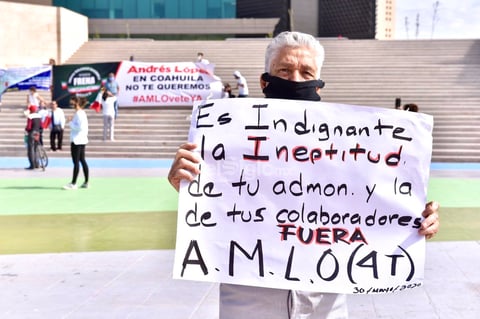 Andrés López
EN COAHUILA
NO TE QUEREMOS
#AMLOveteYA
FRENA
Es Indignante
la Ineptitud.
de tu admon. y la
de tus colaboradores
FUERA
A.M.L.O(4T)
30/mayo/2020